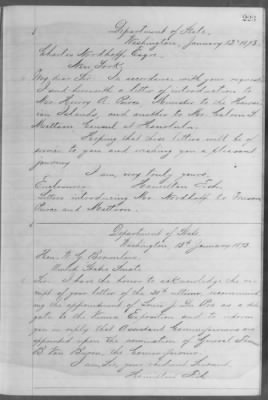 223
Department of State,
Washington, January 13th 1873.
Charles Nordhoff, Esqre.
New York.
My dear Sir: In accordance with your request
I send herewith a letter of introduction to
Mr. Henry A. Peirce, Minister to the Hawai-
ian Islands, and another to Mr. Calvin S.
Mattoon, Consul at Honolulu.
Hoping that these letters will be of
service to you and wishing you a pleasant
journey
I am, very truly yours,
Enclosures. Hamilton Fish.
Letters introducing Mr. Nordhoff to Messrs
Peirce and Mattoon.
Department of State,
Washington, 13th January 1873.
Hon.
United States Senate.
Sir: I have the honor to acknowledge the re-
ceipt of your letter of the ultimo, recommend-
ing the appointment of Louis J. as a dele-
gate to the Vienna Exposition and to inform
you in reply that Assistant Commissioners are
appointed upon the nomination of General Thomas
B. Van Buren, the Commissioner.
I am, Sir, your obedient servant,
Hamilton Fish